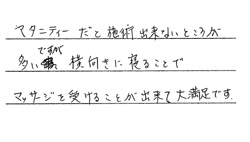 マタニティーだと施術出来ないところが
多いですが 横向きに寝ることで
マッサージを受けることが出来て大満足です